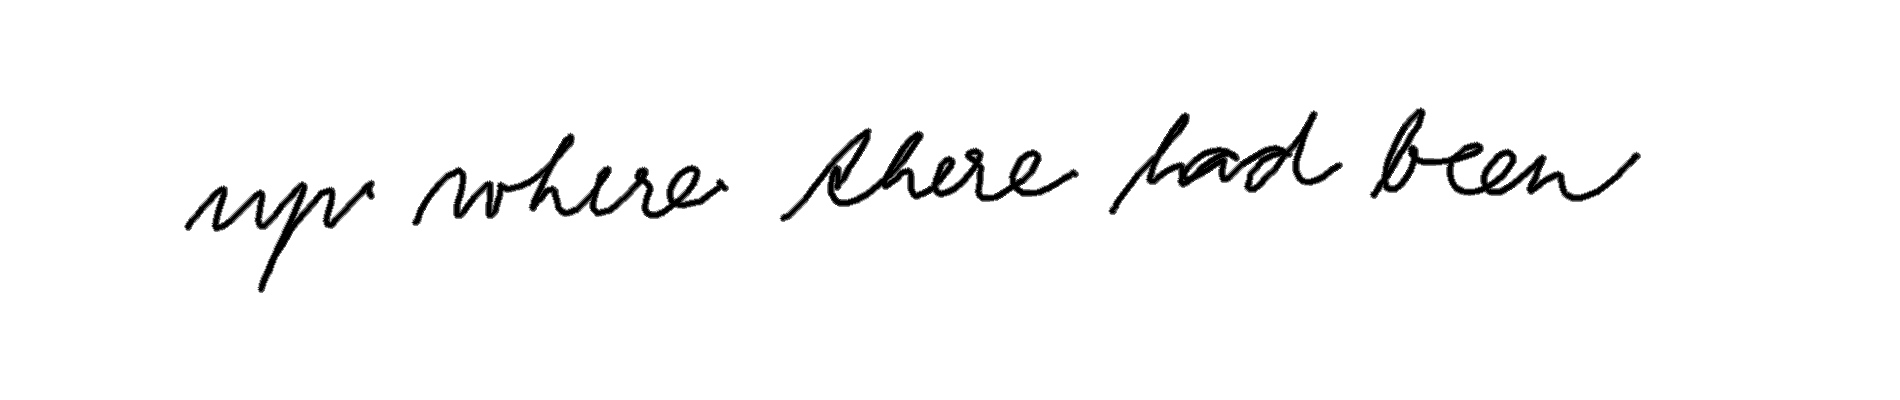 up where there had been